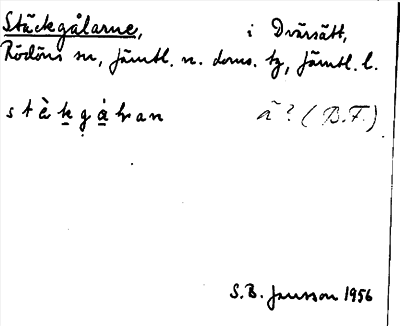 Stäckgålarne, i Dvärsätt,
Rödöns sn, Jämtl. n. doms. tg, Jämtl. l.
stäkgålan ä? (B.F.)
S.B. Jansson 1956